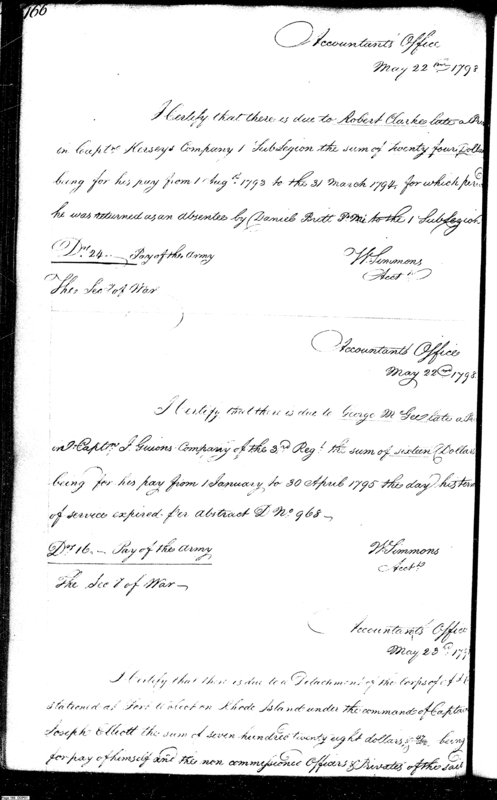 166
Accountants Office
May 22nd 1798
I Certify that there is due to Robert Clarke late a
in Captn Herseys Company 1 SubLegion the sum of twenty four Dollars
being for his pay from 1 Augt 1793 to the 31 March 1794, for which period
he was returned as an absentee by Daniel Britt P Mr to the 1 SubLegion.
Drs 24 .. Pay of the Army
W Simmons
Acct
The Secy of War
Accountants Office
May 22nd 1798
I Certify that there is due to George Mc Gee late a
in Captn J Guions Company of the 3rd Regt the sum of sixteen Dollars
being for his pay from 1 January to 30 April 1795 the day his term
of service expired. Per Abstract D No 968 —
Drs 16 .— Pay of the Army
W Simmons
Acctt
The Secy of War —
Accountants Office
May 23d 179
I Certify that there is due to a Detachment of the Corps of
stationed at Fort Wolcott on Rhode Island under the command of Captain
Joseph Elliott the sum of seven hundred twenty eight dollars & being
for pay of himself and the non commissioned Officers & Privates of the said